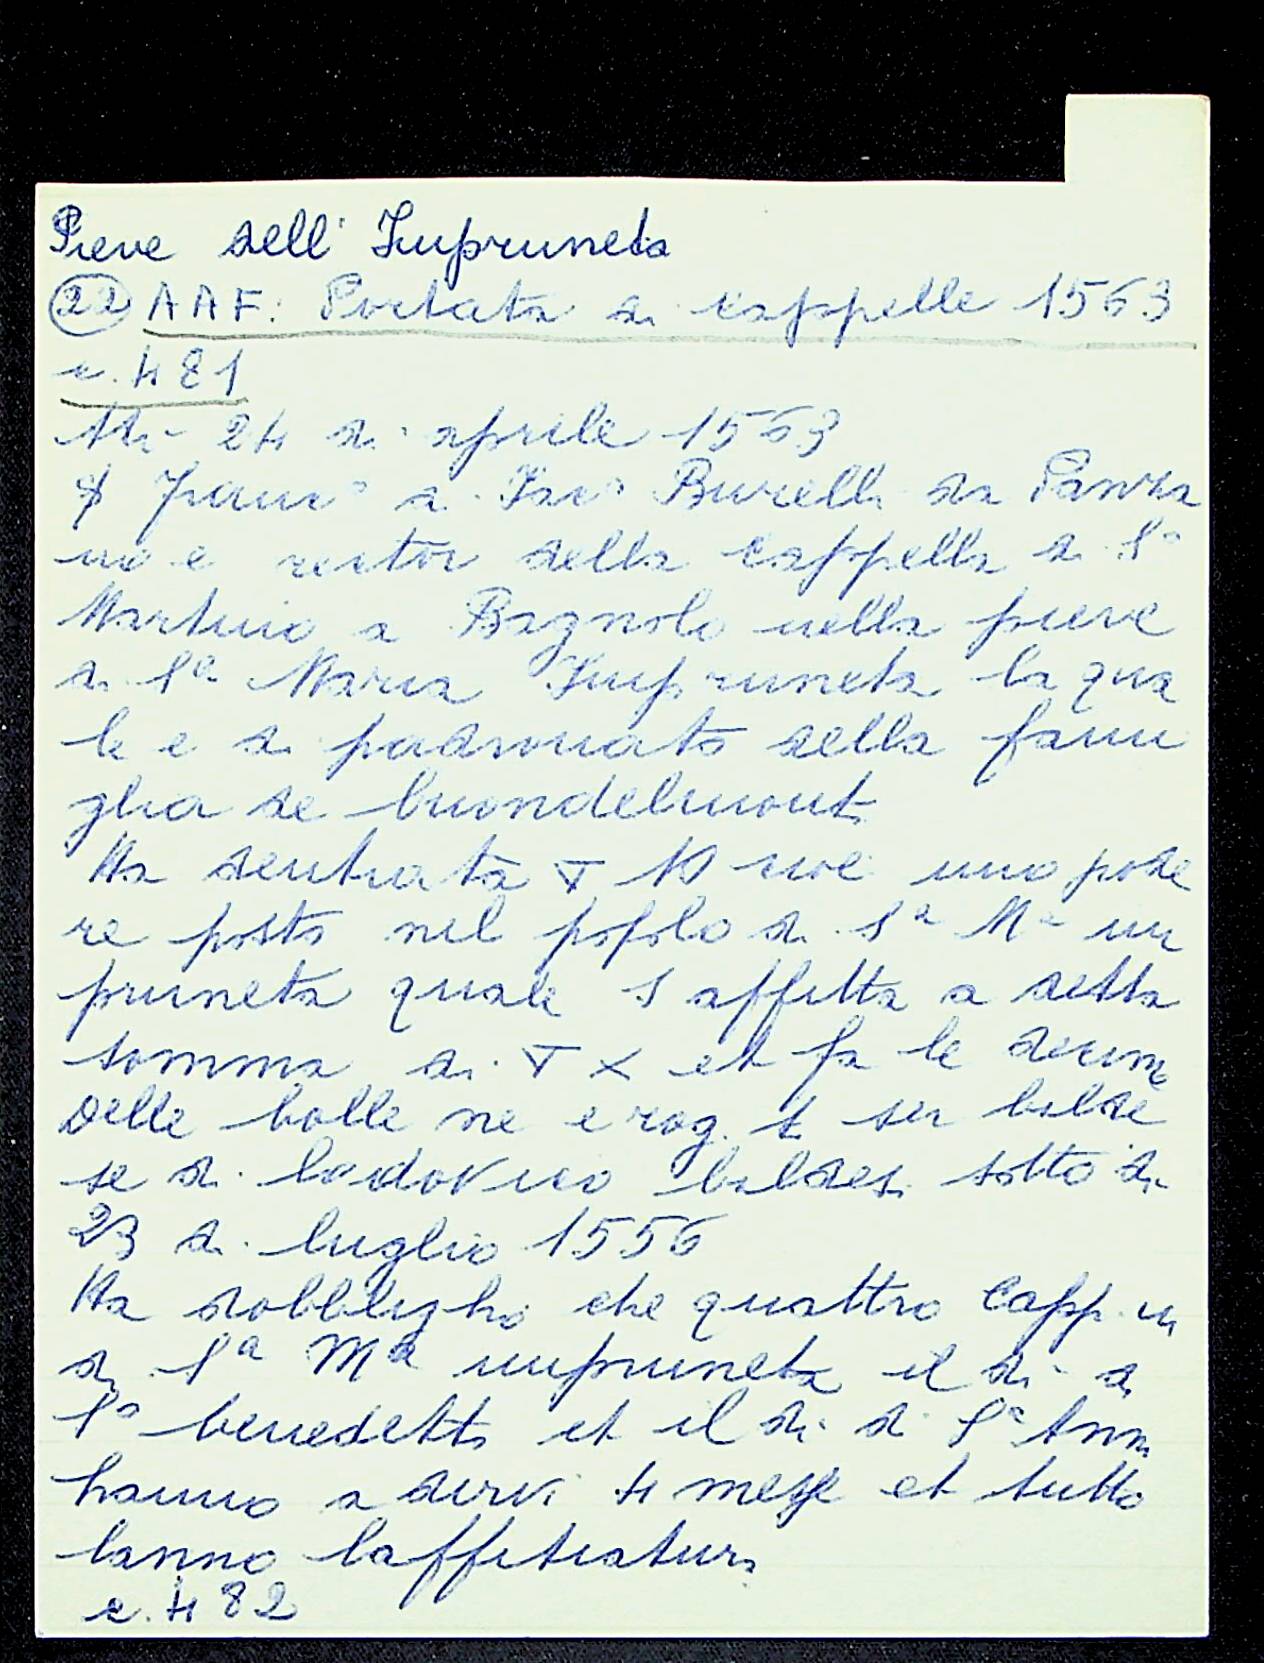 Pieve dell' Impruneta
(22) AAF: Portata di cappelle 1563
c. 481
Adi 24 di aprile 1563
Franco di Jaco Burelli da Panza
no e rettor della cappella di So
Martino a Bagnolo nella pieve
di Sa Maria Impruneta la qua
le e di padronato della fami
glia de buondelmonti
Ha dentrata ∇ 10 cioe uno pode
re posto nel popolo di Sa Ma im
pruneta quale s affitta a detta
somma di ∇ X et fa le decime
Delle bolle ne e rog. ser balde
se di lodovico baldesi sotto di
23 di luglio 1556
Ha dobbligho che quattro Capp.ni
di Sa Ma impruneta il di di
So benedetto et il di di Sa Anna
hanno a dirvi 4 messe et tutto
lanno
c. 482